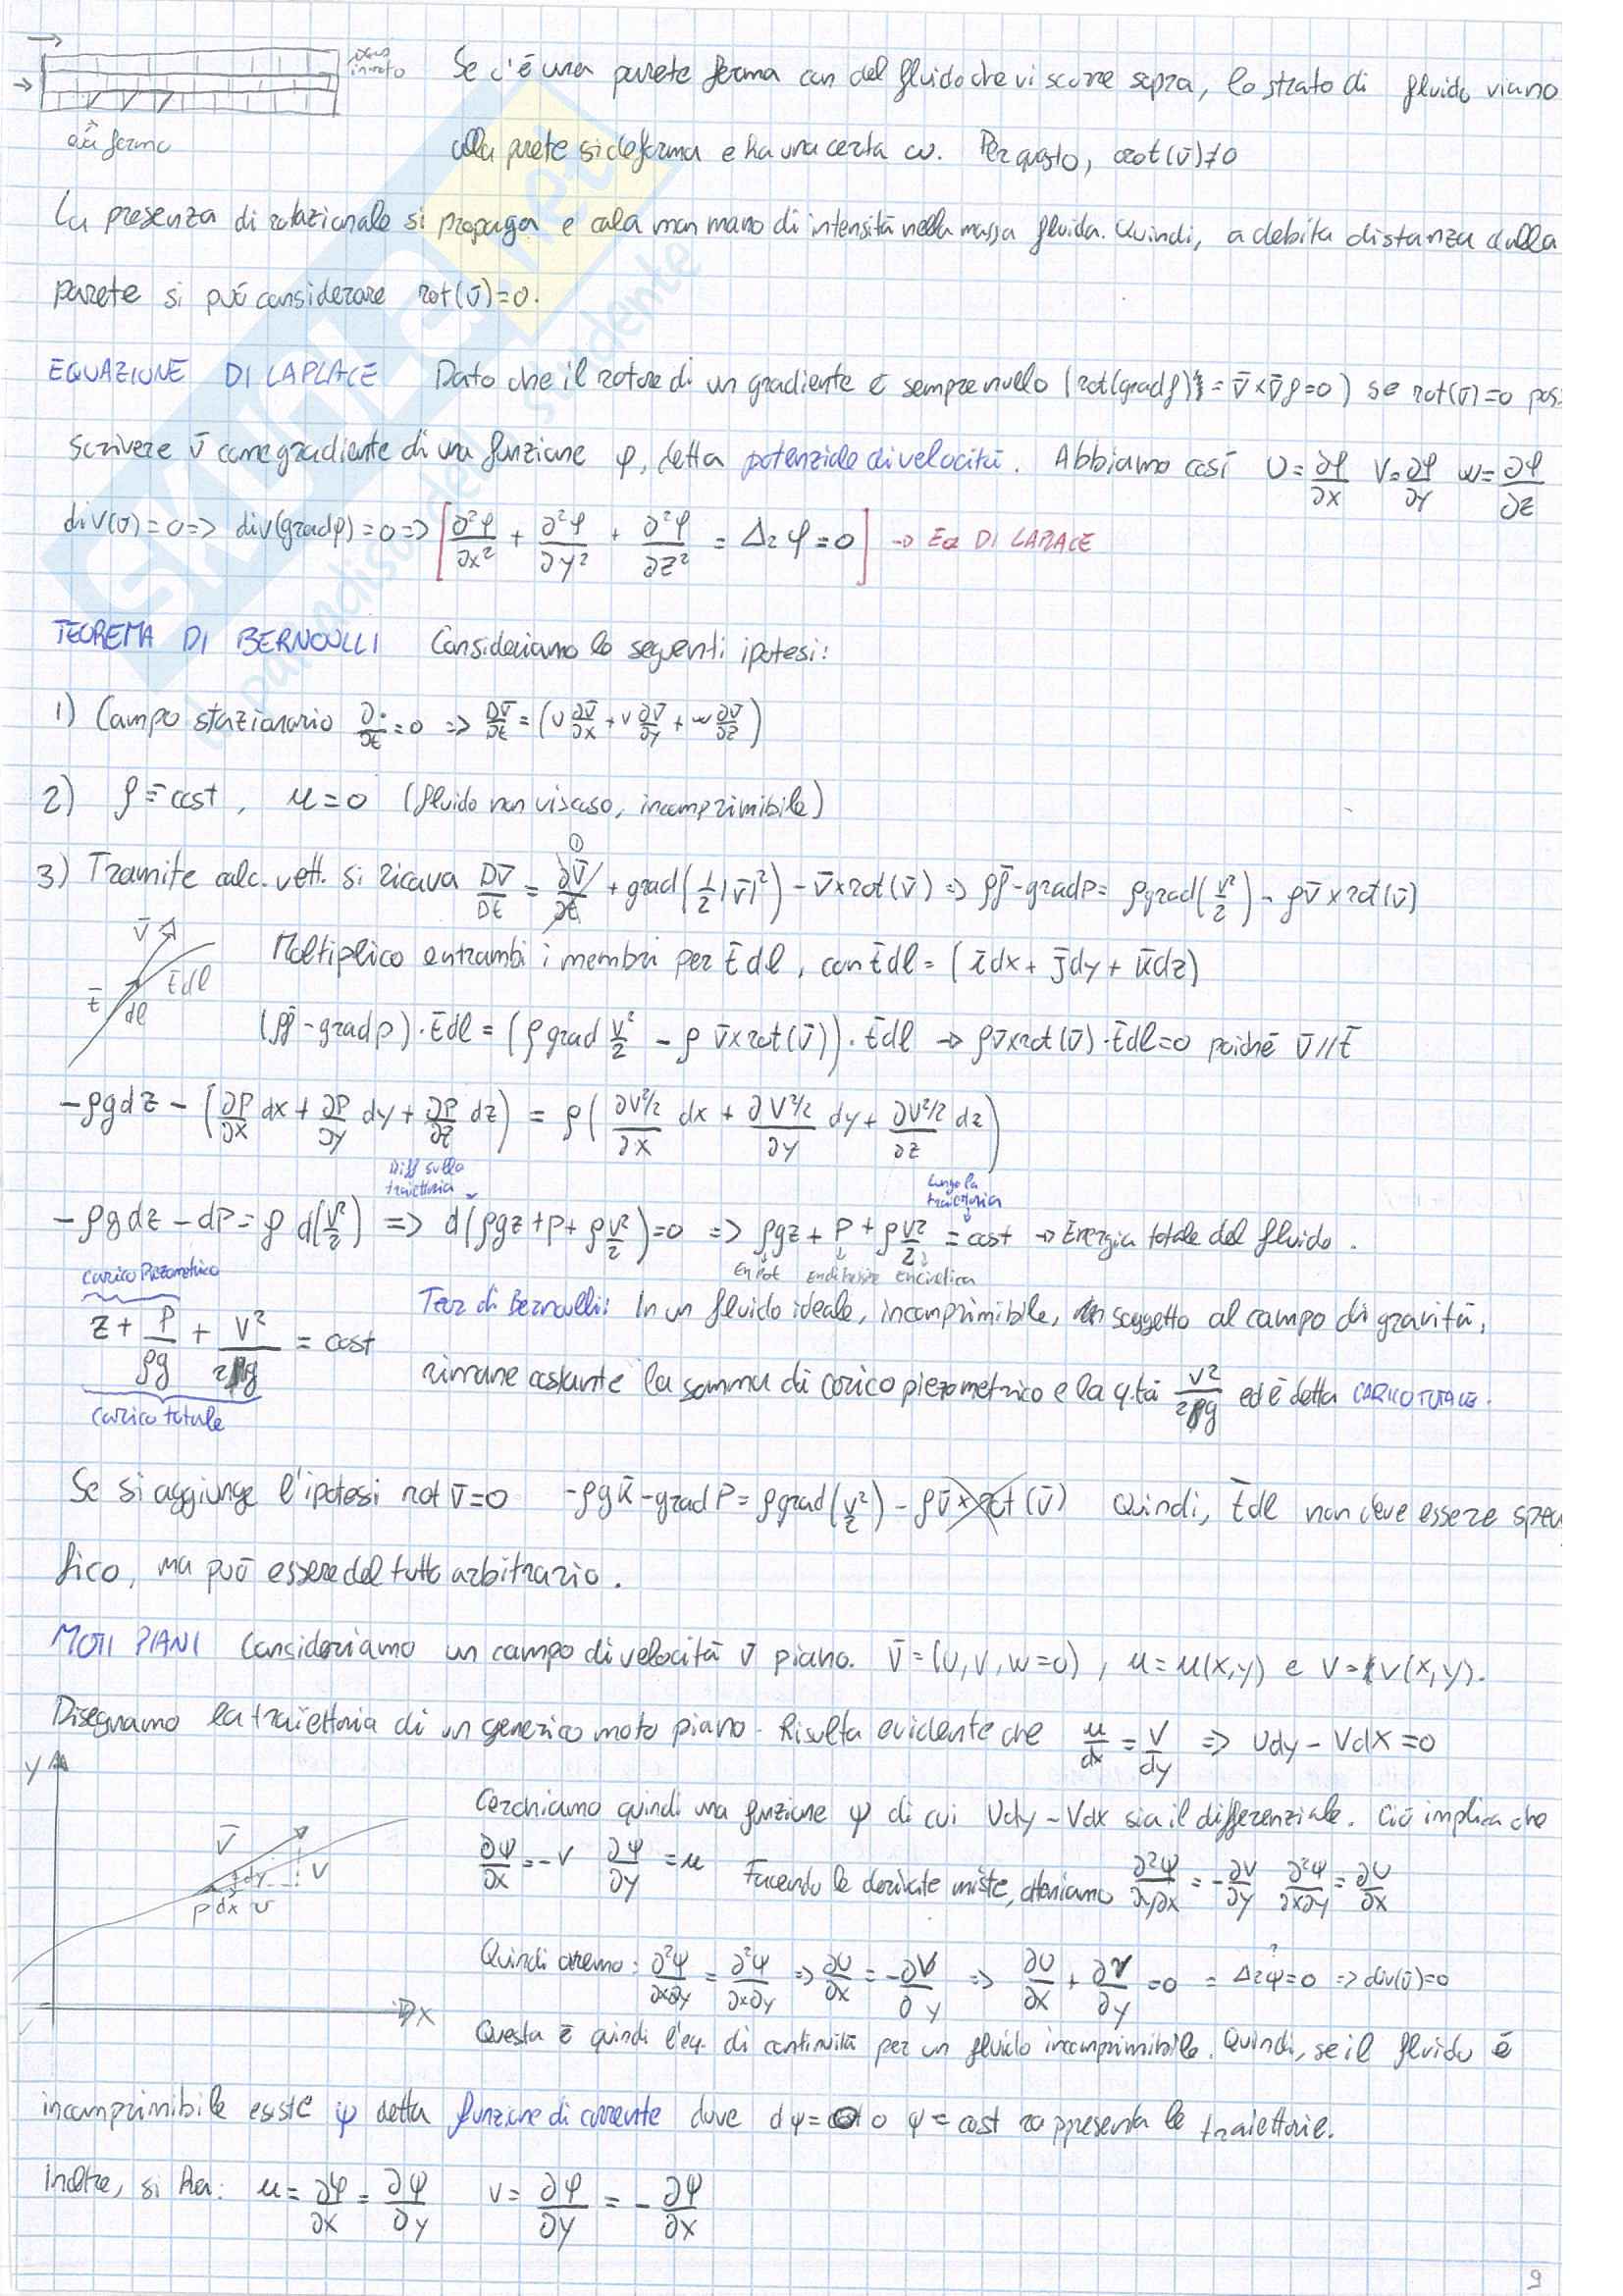 Se c'è una parete ferma con del fluido che vi scorre sopra, lo strato di fluido vicino
qui fermo
alla parete si deforma e ha una certa ω. Per questo, rot(v̄)≠0
La presenza di rotazionale si propaga e cala man mano di intensità nella massa fluida. Quindi, a debita distanza dalla
parete si può considerare rot(v̄)=0.
EQUAZIONE DI LAPLACE Dato che il rotore di un gradiente è sempre nullo (rot(grad f) = ∇̄×∇̄f=0) se rot(v̄)=0 pos
scrivere v̄ come gradiente di una funzione φ, detta potenziale di velocità. Abbiamo così U=∂φ/∂x V=∂φ/∂y w=∂φ/∂z
div(v̄)=0=> div(gradφ)=0=> [∂²φ/∂x² + ∂²φ/∂y² + ∂²φ/∂z² = Δ₂φ=0] → EQ DI LAPLACE
TEOREMA DI BERNOULLI Consideriamo le seguenti ipotesi:
1) Campo stazionario ∂·/∂t=0 => Dv̄/Dt=(u ∂v̄/∂x+v ∂v̄/∂y+w ∂v̄/∂z)
2) ρ=cost, μ=0 (fluido non viscoso, incomprimibile)
3) Tramite calc. vett. si ricava Dv̄/Dt = ∂v̄/∂t + grad(1/2|v̄|²) - v̄×rot(v̄) => ρf̄-gradp= ρgrad(v²/2) - ρv̄×rot(v̄)
v̄ t̄ dl t̄dl
Moltiplico entrambi i membri per t̄dl, con t̄dl=(īdx+j̄dy+k̄dz)
(ρf̄-gradp)·t̄dl=(ρgrad v²/2 - ρ v̄×rot(v̄))·t̄dl → ρv̄×rot(v̄)·t̄dl=0 poiché v̄//t̄
-ρgdz-(∂P/∂x dx+∂P/∂y dy+∂P/∂z dz)=ρ(∂V²/2/∂x dx+∂V²/2/∂y dy+∂V²/2/∂z dz)
Diff sulla traiettoria
Lungo la traiettoria
-ρgdz-dP=ρ d(v²/2) => d(ρgz+p+ρv²/2)=0 => ρgz+P+ρv²/2=cost → Energia totale del fluido.
En pot En cinetica
Carico Piezometrico
z+P/ρg+V²/2g=cost
Carico totale
Teor di Bernoulli: In un fluido ideale, incomprimibile, soggetto al campo di gravità,
rimane costante la somma di carico piezometrico e la q.tà v²/2g ed è detta CARICO TOTALE.
Se si aggiunge l'ipotesi rot v̄=0 -ρgk̄-gradP=ρgrad(v²/2)-ρv̄×rot(v̄) Quindi, t̄dl non deve essere speci
fico, ma può essere del tutto arbitrario.
MOTI PIANI Consideriamo un campo di velocità v̄ piano. v̄=(U,V,W=0), u=u(x,y) e v=v(x,y).
Disegnamo la traiettoria di un generico moto piano. Risulta evidente che u/dx=v/dy => Udy-Vdx=0
y v̄ dy v P dx u x
Cerchiamo quindi una funzione ψ di cui Udy-Vdx sia il differenziale. Ciò implica che
∂ψ/∂x=-v ∂ψ/∂y=u Facendo le derivate miste, otteniamo ∂²ψ/∂y∂x=-∂v/∂y ∂²ψ/∂x∂y=∂U/∂x
Quindi avremo: ∂²ψ/∂x∂y=∂²ψ/∂x∂y => ∂U/∂x=-∂V/∂y => ∂U/∂x+∂V/∂y=0 = Δ₂ψ=0 ? => div(v̄)=0
Questa è quindi l'eq. di continuità per un fluido incomprimibile. Quindi, se il fluido è
incomprimibile esiste ψ detta funzione di corrente dove dψ=0 o ψ=cost rappresenta le traiettorie.
Inoltre, si ha: u=∂φ/∂x=∂ψ/∂y v=∂φ/∂y=-∂ψ/∂x
9
SKUOLA.net
il paradiso dello studente